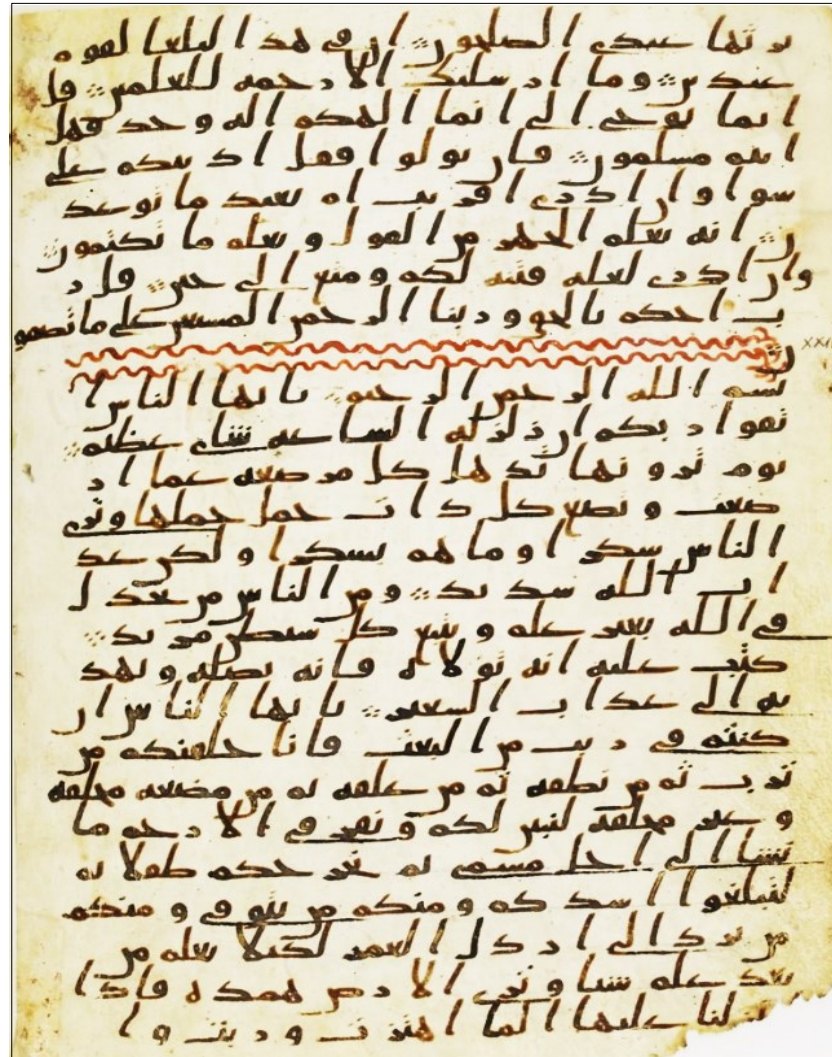 يرثها عبدي الصلحون ان في هذا لبلغا لقوم
عبدين وما ارسلنك الا رحمة للعلمين قل
انما يوحى الي انما الهكم اله وحد فهل
انتم مسلمون فان تولوا فقل اذنتكم على
سوا وان ادري اقريب ام بعيد ما توعد
ون انه يعلم الجهر من القول ويعلم ما تكتمون
وان ادري لعله فتنة لكم ومتع الى حين قل ر
ب احكم بالحق وربنا الرحمن المستعن على ما تصفو
ن
بسم الله الرحمن الرحيم يايها الناس ا
تقوا ربكم ان زلزلة الساعة شاي عظيم
يوم ترونها تذهل كل مرضعة عما ار
ضعت وتضع كل ذات حمل حملها وترى
الناس سكرا وما هم بسكرا ولكن عذ
اب الله شديد ومن الناس من يجدل
في الله بغير علم ويتبع كل شيطن مريد
كتب عليه انه تولاه فانه يضله ويهد
يه الى عذاب السعير يايها الناس ان
كنتم في ريب من البعث فانا خلقنكم من
ترب ثم من نطفة ثم من علقة ثم من مضغة مخلقة
وغير مخلقة لنبين لكم ونقر في الارحم ما
نشا الى اجل مسمى ثم نخرجكم طفلا ثم
لتبلغوا اشدكم ومنكم من يتوفى ومنكم
من يرد الى ارذل العمر لكيلا يعلم من
بعد علم شيا وترى الارض همدة فاذا
لنا عليها الما اهتزت وربت وا